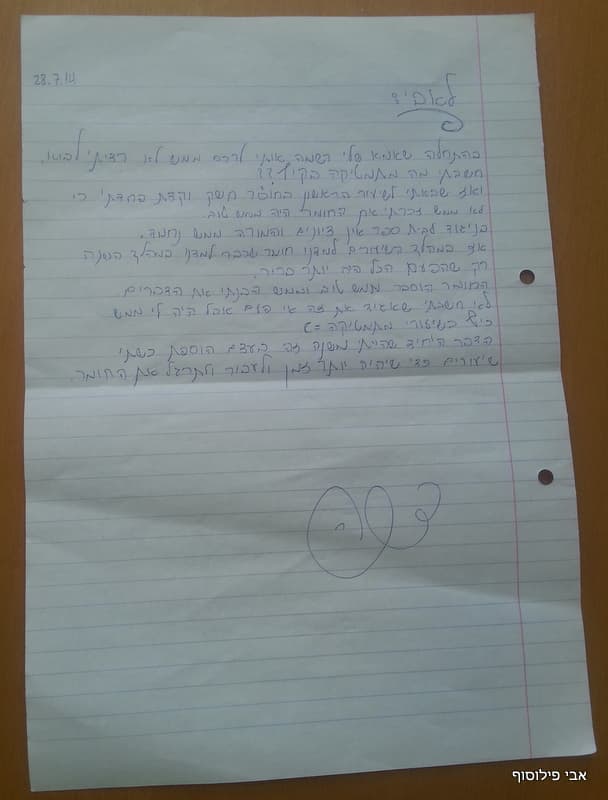 28.7.14
לאבי :
בהתחלה שאמא שלי רשמה אותי לקורס ממש לא רציתי לבוא,
חשבתי מה מתמטיקה בקיץ?!?
ואז שבאתי לשיעור הראשון בחוסר חשק וקצת פחדתי כי
לא ממש זכרתי את החומר היה ממש טוב.
בניגוד לבית ספר אין ציונים והמורה ממש נחמד.
אז במהלך השיעורים למדנו חומר שכבר למדנו במהלך השנה
רק שהפעם הכל היה יותר ברור.
החומר הוסבר ממש טוב וממש הבנתי את הדברים
לא חשבתי שאגיד את זה אי פעם אבל היה לי ממש
כיף בשיעורי מתמטיקה =)
הדבר היחיד שהייתי משנה זה בעצם הוספת כשתי
שיעורים כדי שיהיה יותר זמן לעבור ולתרגל את החומר.
אבי פילוסוף